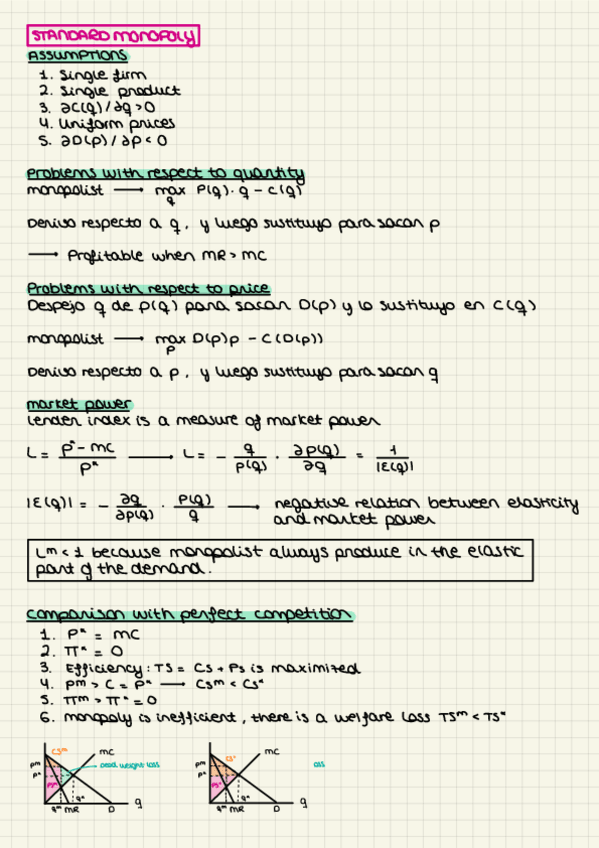 STANDARD MONOPOLY
ASSUMPTIONS
1. Single firm
2. Single product
3. ∂C(q)/∂q > 0
4. Uniform prices
5. ∂D(p)/∂p < 0
Problems with respect to quantity
monopolist ⟶ max_q P(q)·q − C(q)
Derivo respecto a q, y luego sustituyo para sacar p
⟶ Profitable when MR > MC
Problems with respect to price
Despejo q de p(q) para sacar D(p) y lo sustituyo en C(q)
monopolist ⟶ max_p D(p)p − C(D(p))
Derivo respecto a p, y luego sustituyo para sacar q
market power
Lender index is a measure of market power
L = (p* − MC)/p* ⟶ L = − q/p(q) · ∂p(q)/∂q = 1/|ε(q)|
|ε(q)| = − ∂q/∂p(q) · p(q)/q ⟶ negative relation between elasticity
and market power
Lᵐ < 1 because monopolist always produce in the elastic
part of the demand.
Comparison with perfect competition
1. P* = MC
2. π* = 0
3. Efficiency: TS = CS + PS is maximized
4. pᵐ > C = P* ⟶ CSᵐ < CS*
5. πᵐ > π* = 0
6. monopoly is inefficient, there is a welfare loss TSᵐ < TS*
CSᵐ MC
pm Dead weight loss
p*
PSᵐ
qᵐ q* MR D q
CS* MC
pm oss
p*
PS*
qᵐ q* MR D q